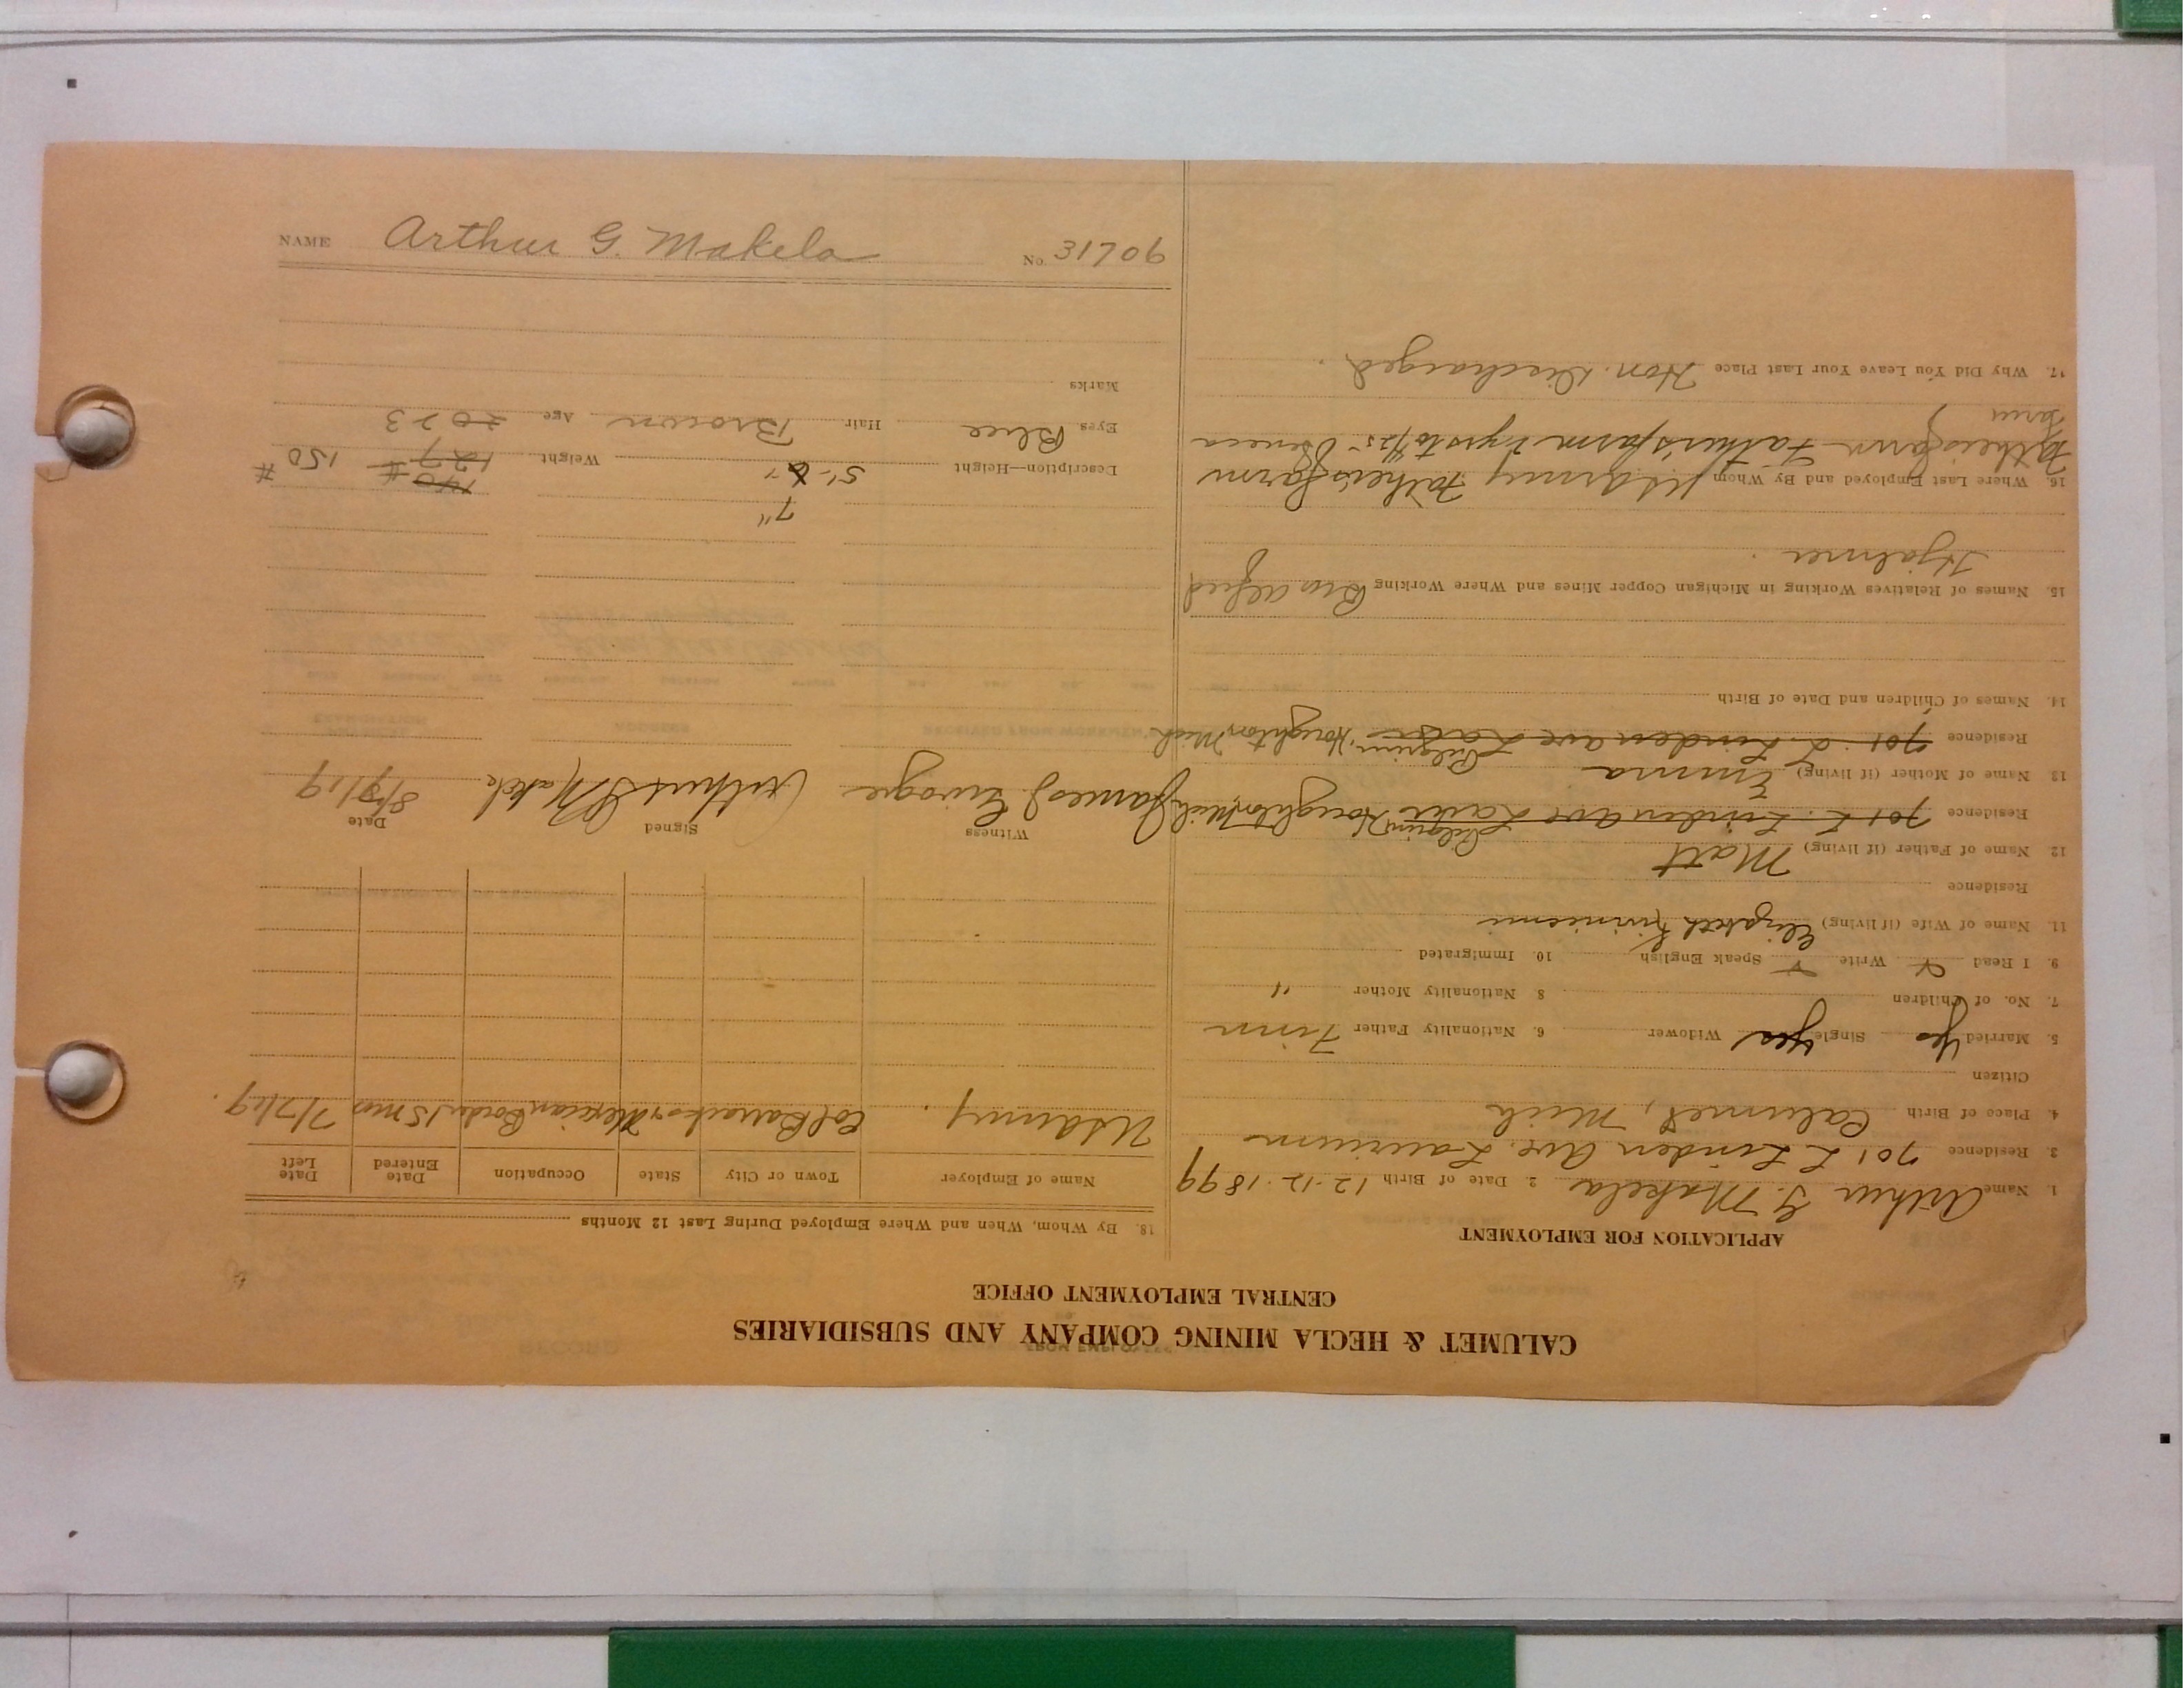 NAME Arthur G. Makela No. 31706
CALUMET & HECLA MINING COMPANY AND SUBSIDIARIES
CENTRAL EMPLOYMENT OFFICE
APPLICATION FOR EMPLOYMENT
1. Name Arthur G. Makela 2. Date of Birth 12-12-1899
3. Residence 701 L Linden Ave. Laurium
4. Place of Birth Calumet, Mich
Citizen
5. Married Yes Single Yes Widower 6. Nationality Father Finn
7. No. of Children 8 Nationality Mother "
9. I Read Write Speak English 10. Immigrated
11. Name of Wife (if living) Elizabeth
Residence
12. Name of Father (if living) Matt
Residence 701 L. Linden ave Laur Pilgrim, Houghton, Mich
13. Name of Mother (if living) Emma
Residence 701 L. Linden ave Laur Pilgrim, Houghton, Mich
14. Names of Children and Date of Birth
15. Names of Relatives Working in Michigan Copper Mines and Where Working Bro Alfred
Hjalmer
16. Where Last Employed and By Whom US Army Father's farm
Fathers farm Father's farm 2 yrs to Seneca
farm
17. Why Did You Leave Your Last Place Hon. Discharged.
18. By Whom, When and Where Employed During Last 12 Months
Name of Employer Town or City State Occupation Date Entered Date Left
US Army. Col Barracks & Mexican Border 15 mos 7/7/19.
Witness Signed Date
James J. Arthur G Makela 8/9/19
7" 140 #
Description—Height 5'- 6" Weight 127 150 #
Eyes Blue Hair Brown Age 20 23
Marks